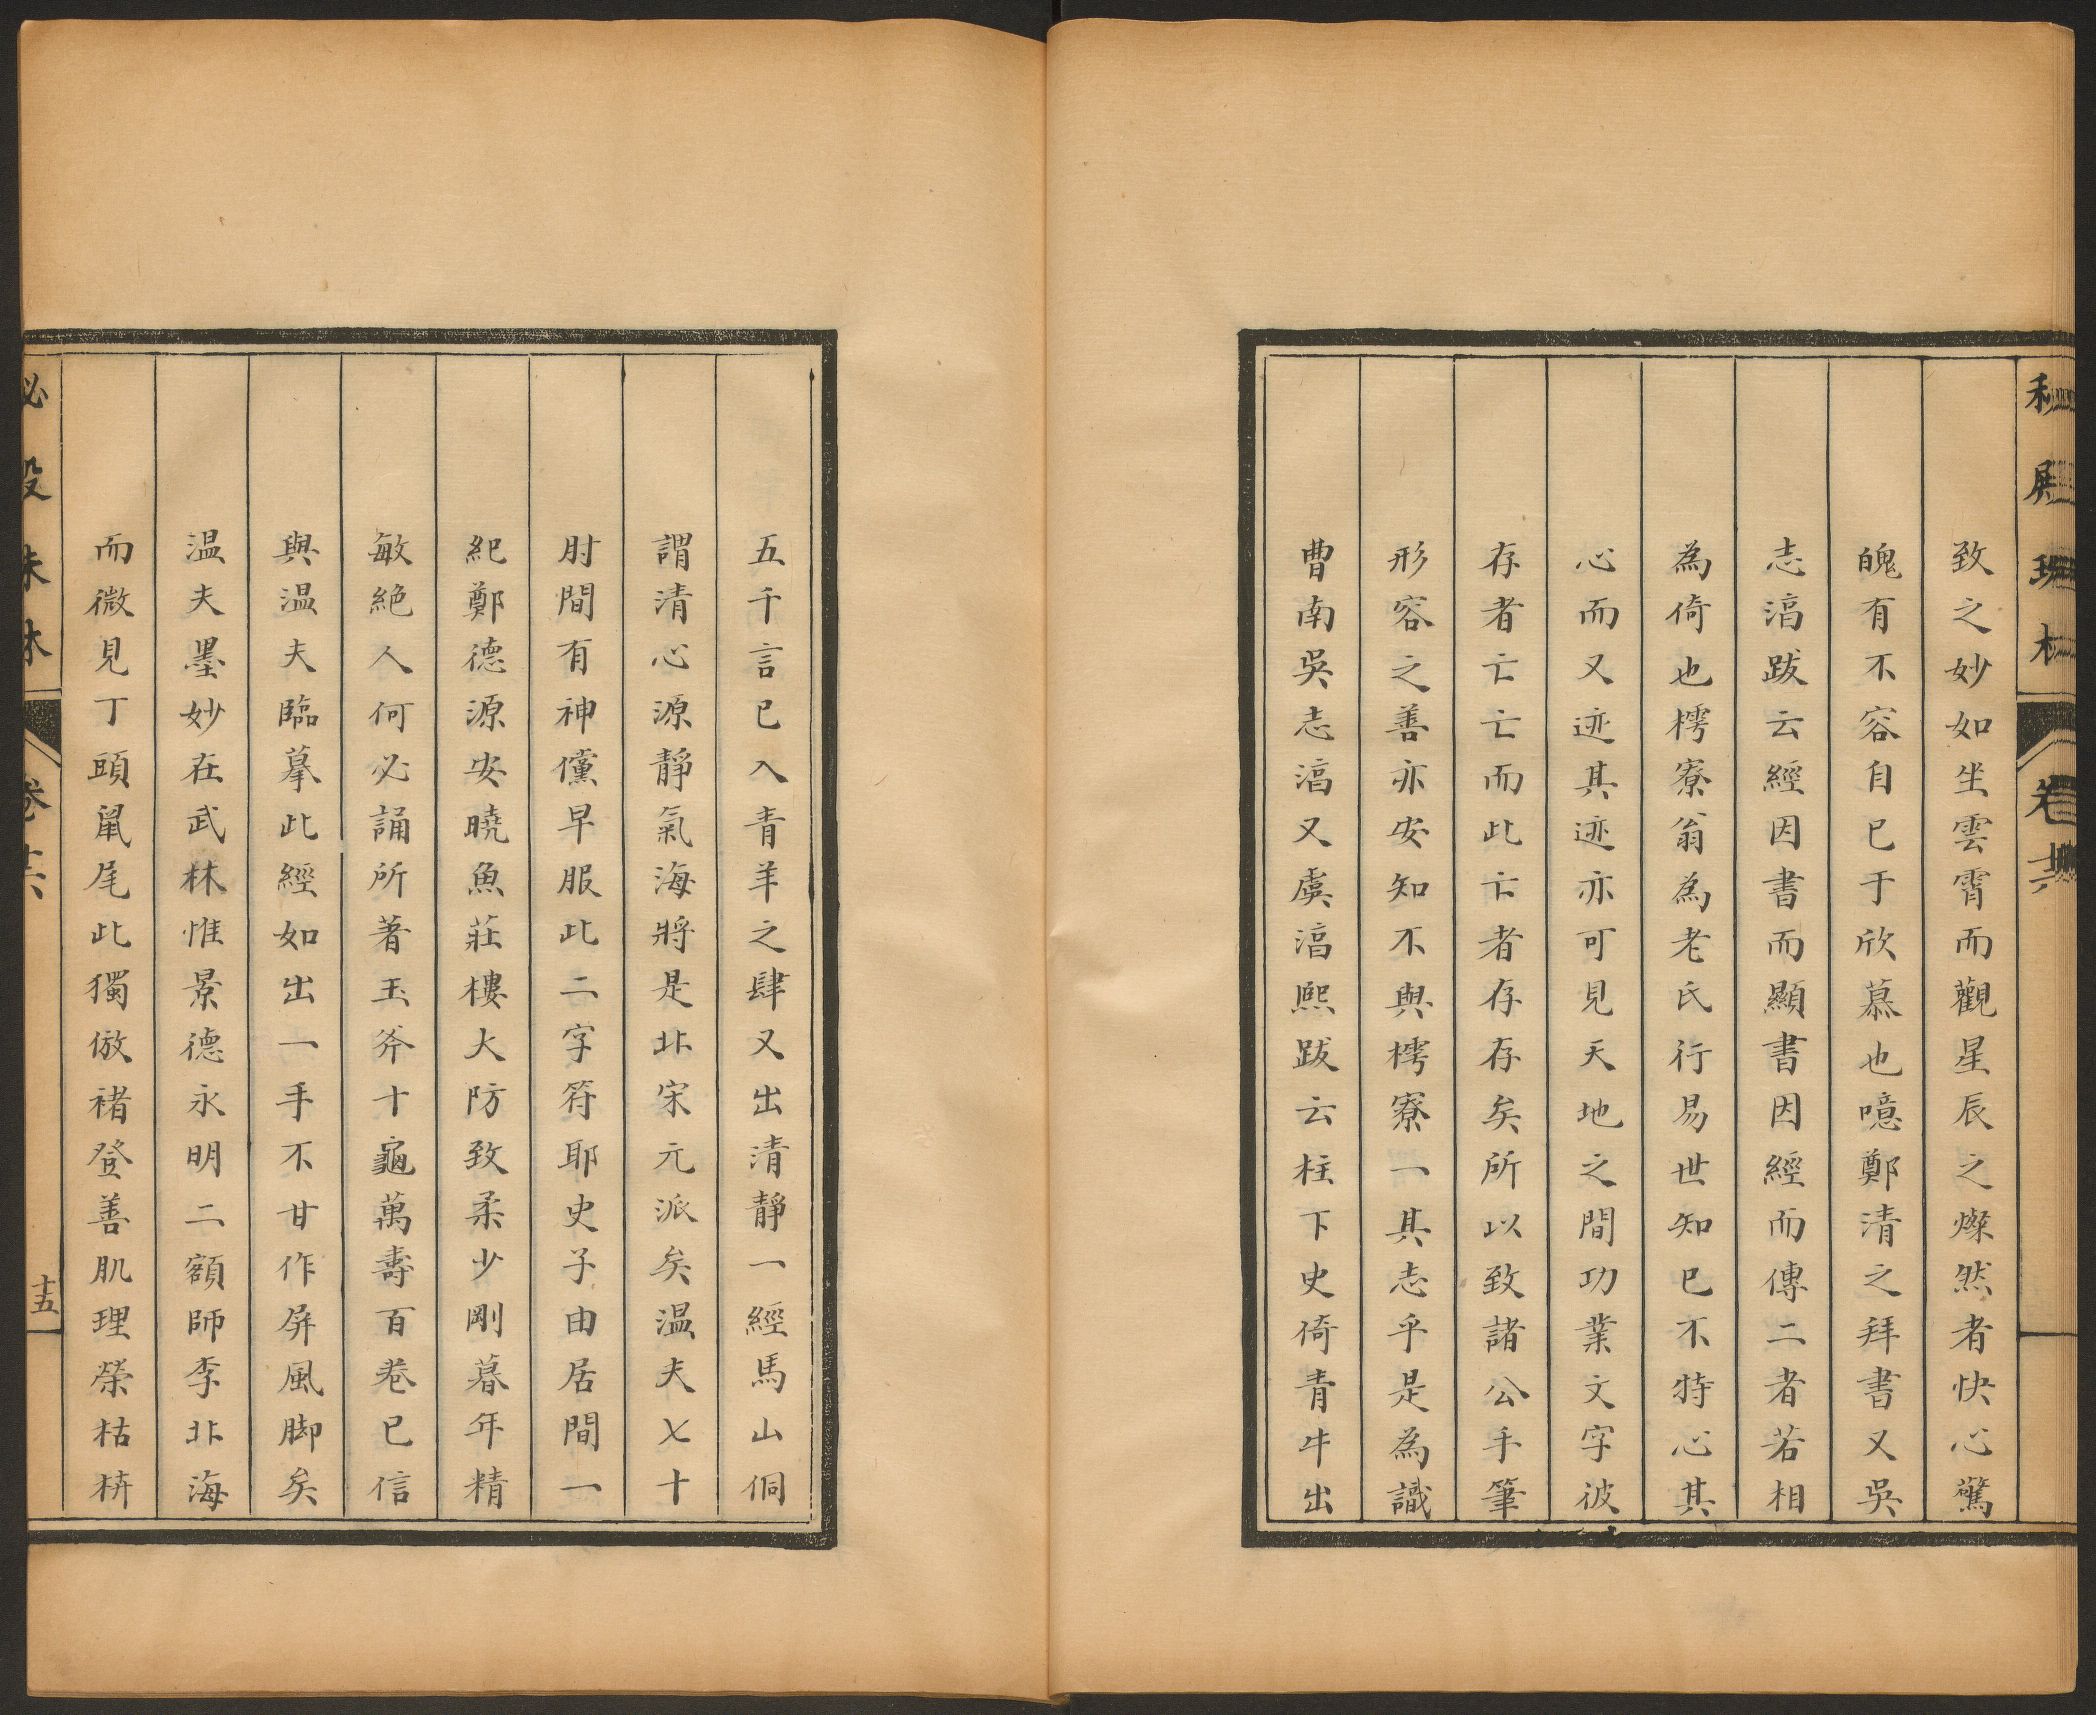 致之妙如坐雲霄而觀星辰之燦然者快心驚
魄有不容自已于欣慕也噫鄭清之拜書又吳
志淓跋云經因書而顯書因經而傳二者若相
為倚也樗寮翁為老氏行易世知已不特心其
心而又迹其迹亦可見天地之間功業文字彼
存者亡亡而此亡者存存矣所以致諸公手筆
形容之善亦安知不與樗寮一其志乎是為識
曹南吳志淓又虞淓熙跋云柱下史倚青牛出
五千言已入青羊之肆又出清靜一經馬山侗
謂清心源靜氣海將是北宋元派矣温夫七十
肘間有神儻早服此二字符耶史子由居間一
紀鄭德源安曉魚莊樓大防致柔少剛暮年精
敏絶人何必誦所著玉斧十龜萬壽百卷已信
與温夫臨摹此經如出一手不甘作屏風脚矣
温夫墨妙在武林惟景德永明二額師李北海
而微見丁頭鼠尾此獨倣褚登善肌理榮枯枿
秘殿珠林 卷十六 十五